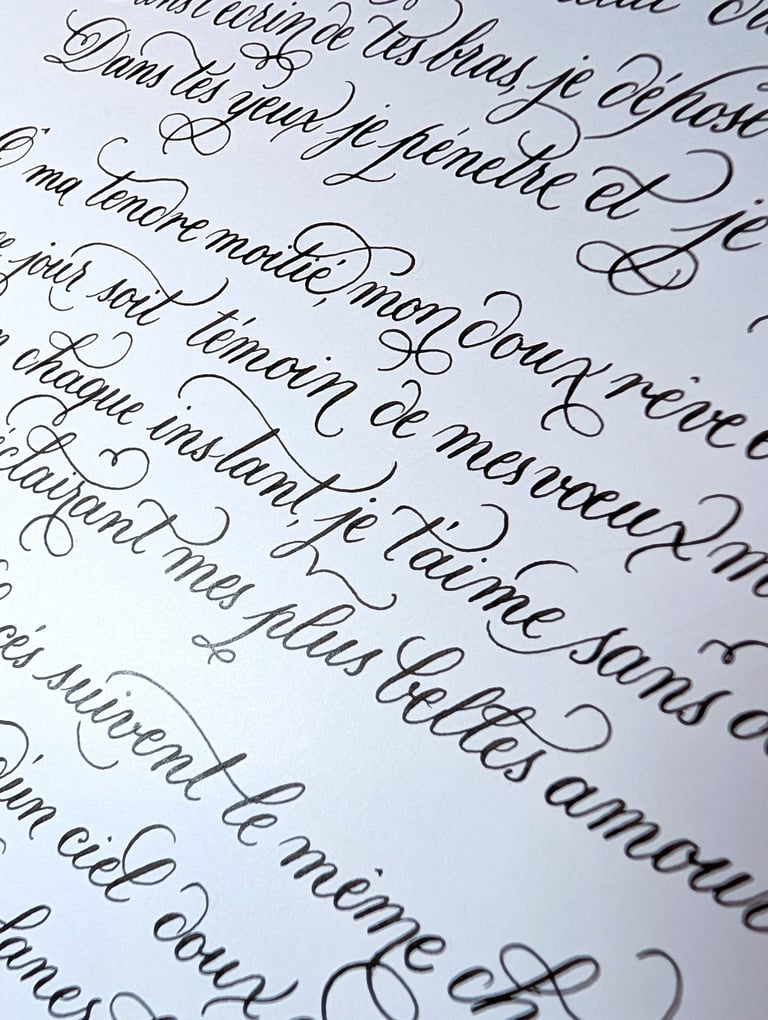 l'écrin de tes bras, je dépose
Dans tes yeux je pénètre et je
Ô ma tendre moitié, mon doux rêve
jour soit témoin de mes vœux
chaque instant, je t'aime sans
éclairant mes plus belles amour
cés suivent le même ch
d'un ciel doux
lanes